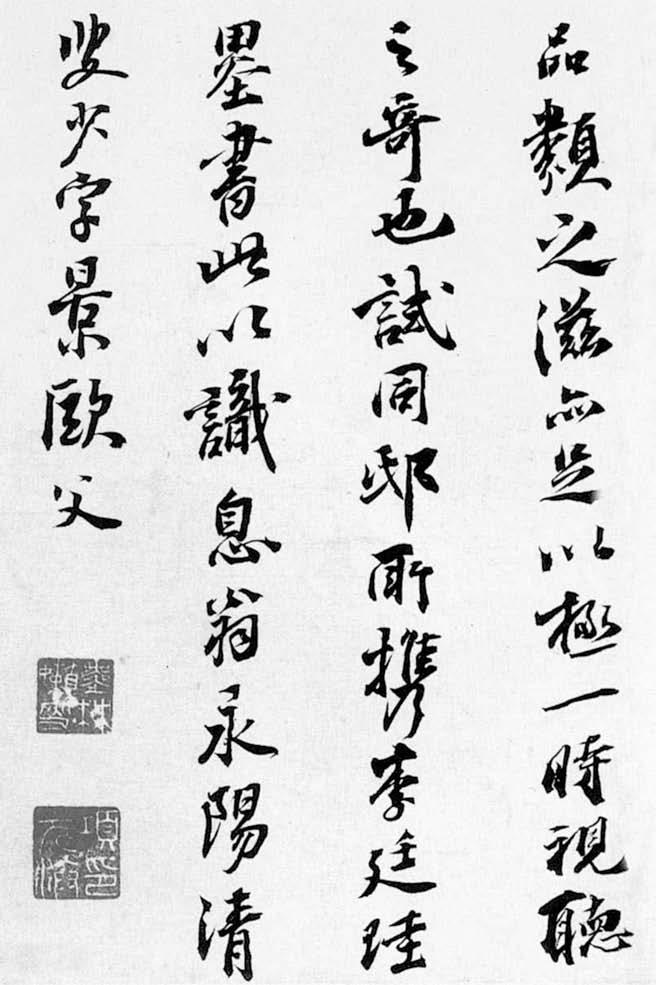 品類之滋亦足以極一時視聽
之竒也試同邸所携李廷珪
墨書此以識息翁永陽清
叟少字景歐父
項元汴印